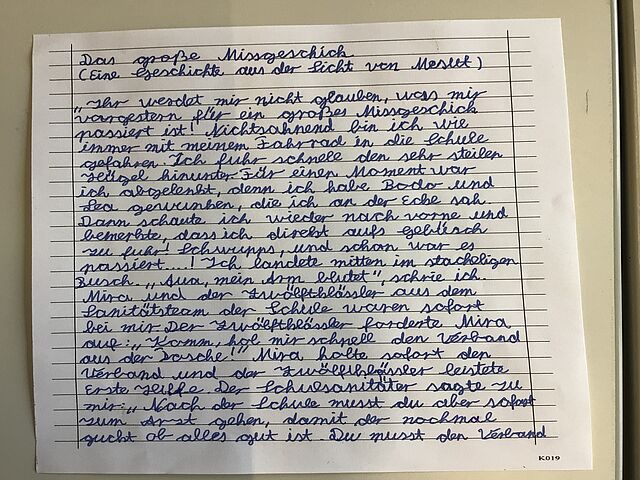 Das große Missgeschick
(Eine Geschichte aus der Sicht von Mesut)
„Ihr werdet mir nicht glauben, was mir
vorgestern für ein großes Missgeschick
passiert ist! Nichtsahnend bin ich wie
immer mit meinem Fahrrad in die Schule
gefahren. Ich fuhr schnell den sehr steilen
Hügel hinunter Für einen Moment war
ich abgelenkt, denn ich habe Bodo und
Lea gewunken, die ich an der Ecke sah.
Dann schaute ich wieder nach vorne und
bemerkte, dass ich direkt aufs Gebüsch
zu fuhr! Schwupps, und schon war es
passiert....! Ich landete mitten im stacheligen
Busch. „Aua, mein Arm blutet", schrie ich.
Mira und der Zwölftklässler aus dem
Sanitätsteam der Schule waren sofort
bei mir. Der Zwölftklässler forderte Mira
auf: „Komm, hol mir schnell den Verband
aus der Tasche!" Mira holte sofort den
Verband und der Zwölftklässler leistete
Erste Hilfe. Der Schulsanitäter sagte zu
mir: „Nach der Schule musst du aber sofort
zum Arzt gehen, damit der nochmal
guckt ob alles gut ist. Du musst den Verband
K019